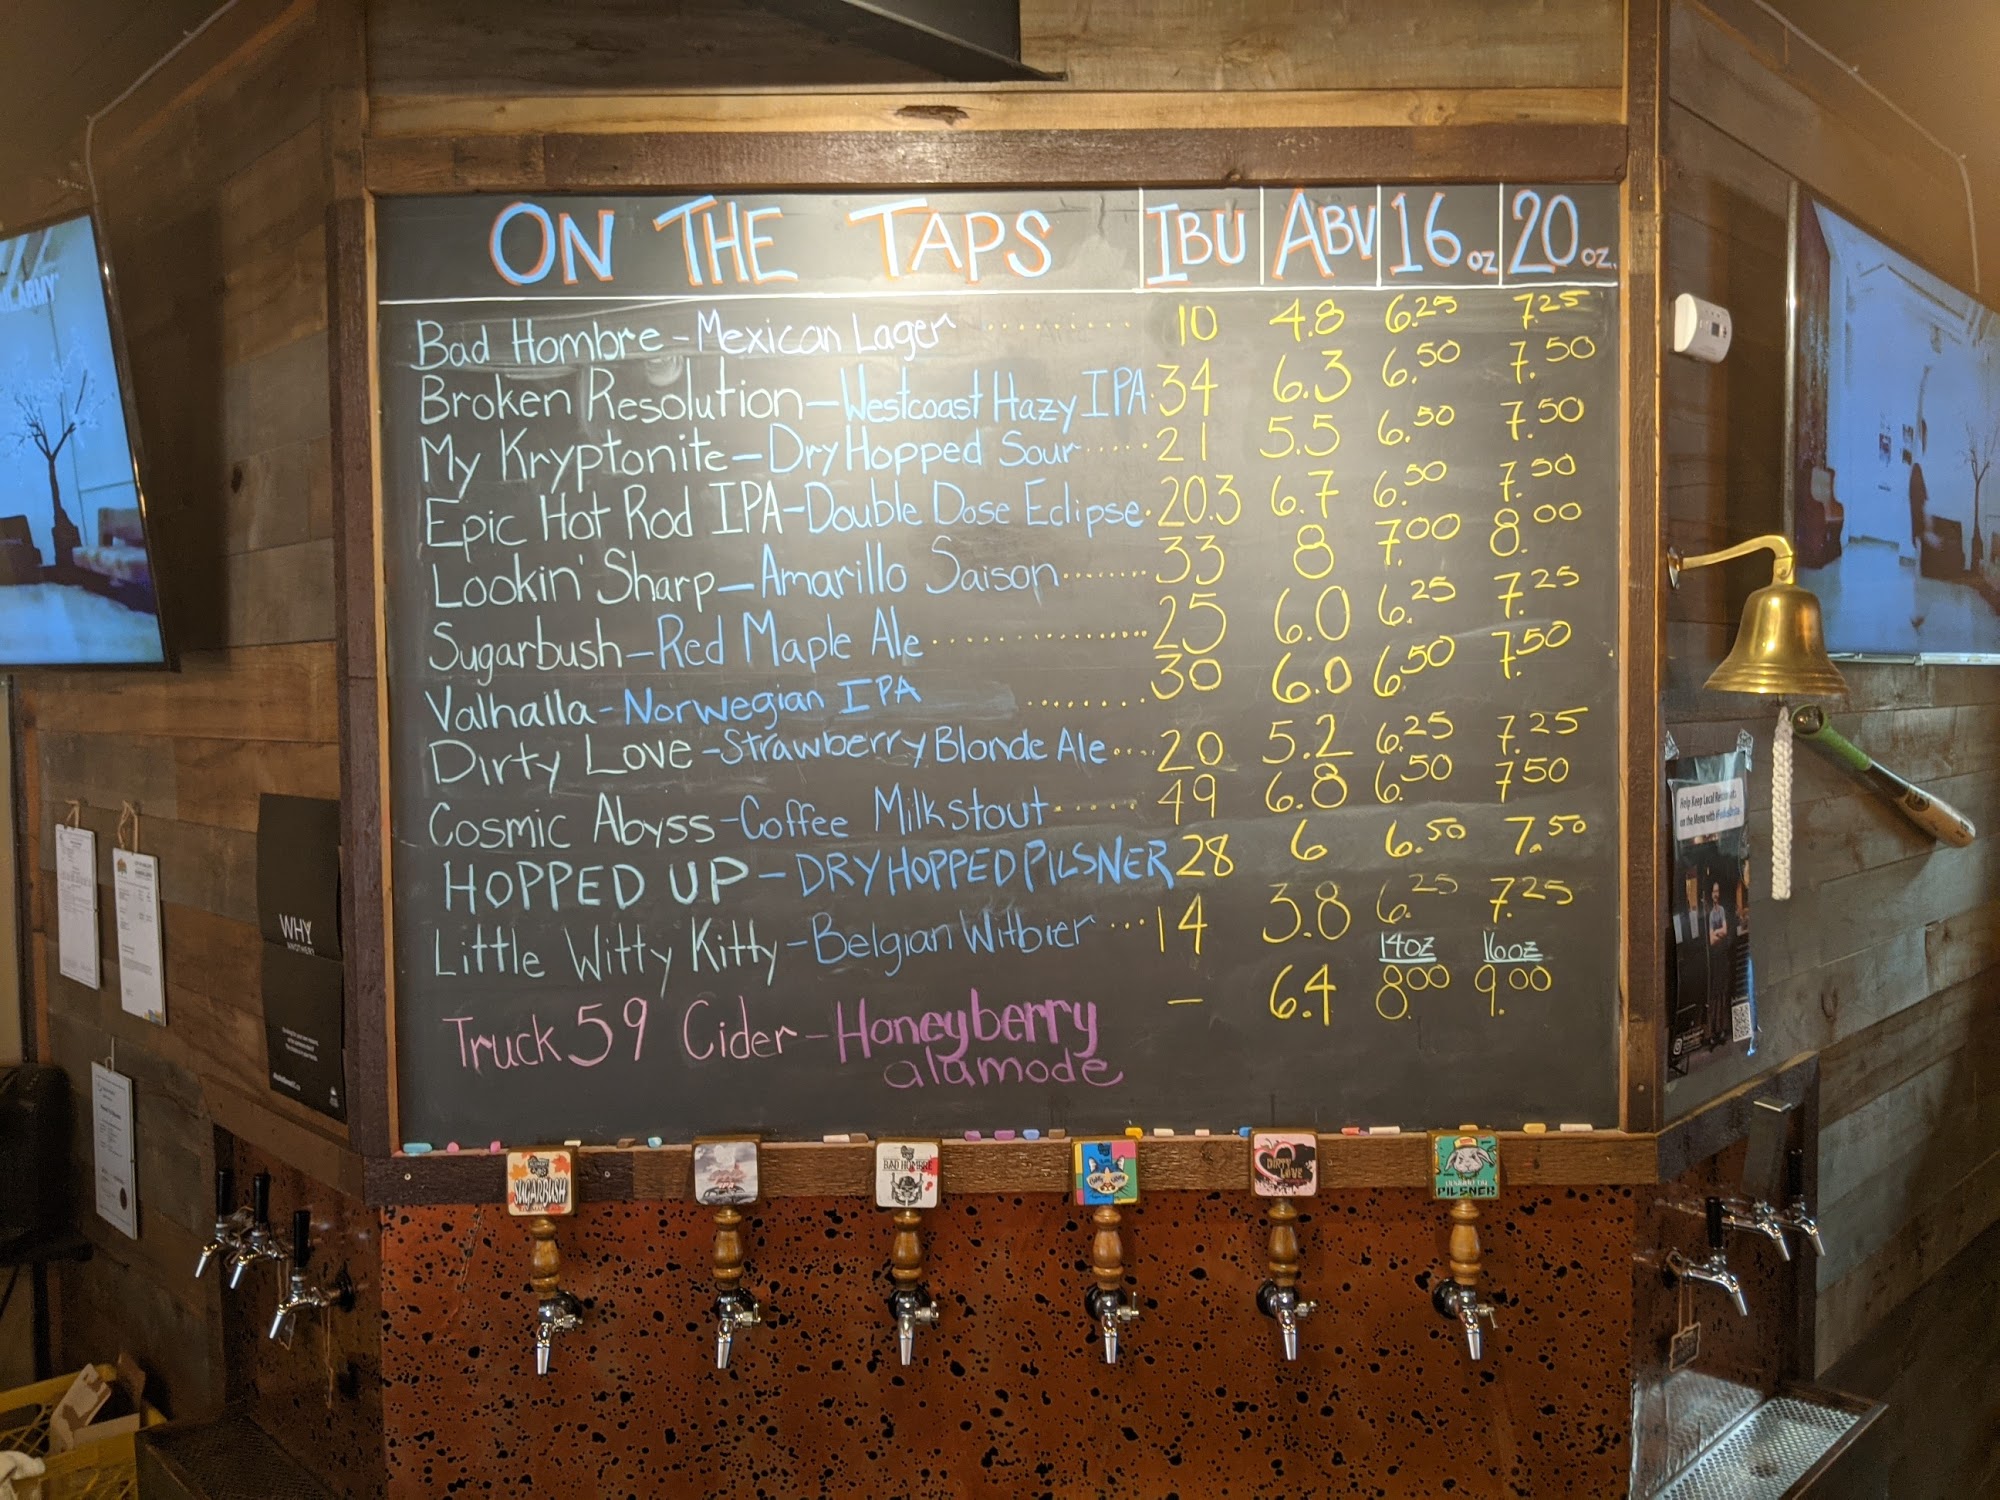 ON THE TAPS IBU ABV 16oz 20oz.
Bad Hombre - Mexican Lager .......... 10 4.8 6.25 7.25
Broken Resolution - Westcoast Hazy IPA. 34 6.3 6.50 7.50
My Kryptonite - Dry Hopped Sour ..... 21 5.5 6.50 7.50
Epic Hot Rod IPA - Double Dose Eclipse. 20.3 6.7 6.50 7.50
Lookin' Sharp - Amarillo Saison ....... 33 8 7.00 8.00
Sugarbush - Red Maple Ale ............... 25 6.0 6.25 7.25
Valhalla - Norwegian IPA ........ 30 6.0 6.50 7.50
Dirty Love - Strawberry Blonde Ale .... 20 5.2 6.25 7.25
Cosmic Abyss - Coffee Milkstout ...... 49 6.8 6.50 7.50
HOPPED UP - DRY HOPPED PILSNER 28 6 6.50 7.50
Little Witty Kitty - Belgian Witbier ... 14 3.8 6.25 7.25
14oz 16oz
Truck 59 Cider - Honeyberry - 6.4 8.00 9.00
alamode
ARMY
WHY
Help Keep Local Restaurants
on the Menu with
SUGARBUSH
BAD HOMBRE
DIRTY LOVE
PILSNER